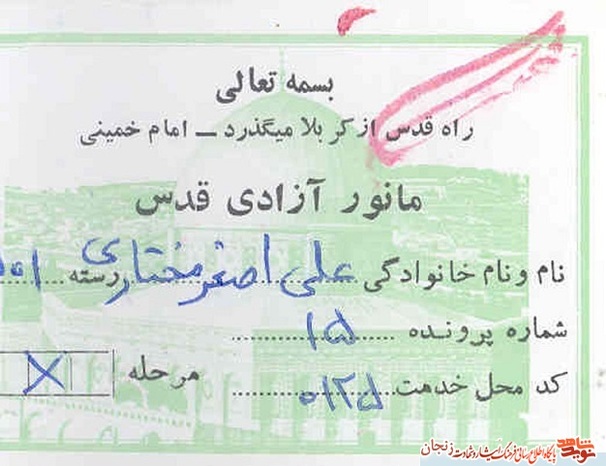 بسمه تعالی
راه قدس از کربلا میگذرد ــ امام خمینی
مانور آزادی قدس
نام و نام خانوادگی علی اصغر مختاری رسته
شماره پرونده ۱۵
کد محل خدمت ۰۱۲۵ مرحله X
نوید شاهد پایگاه اطلاع رسانی فرهنگ ایثار و شهادت زنجان